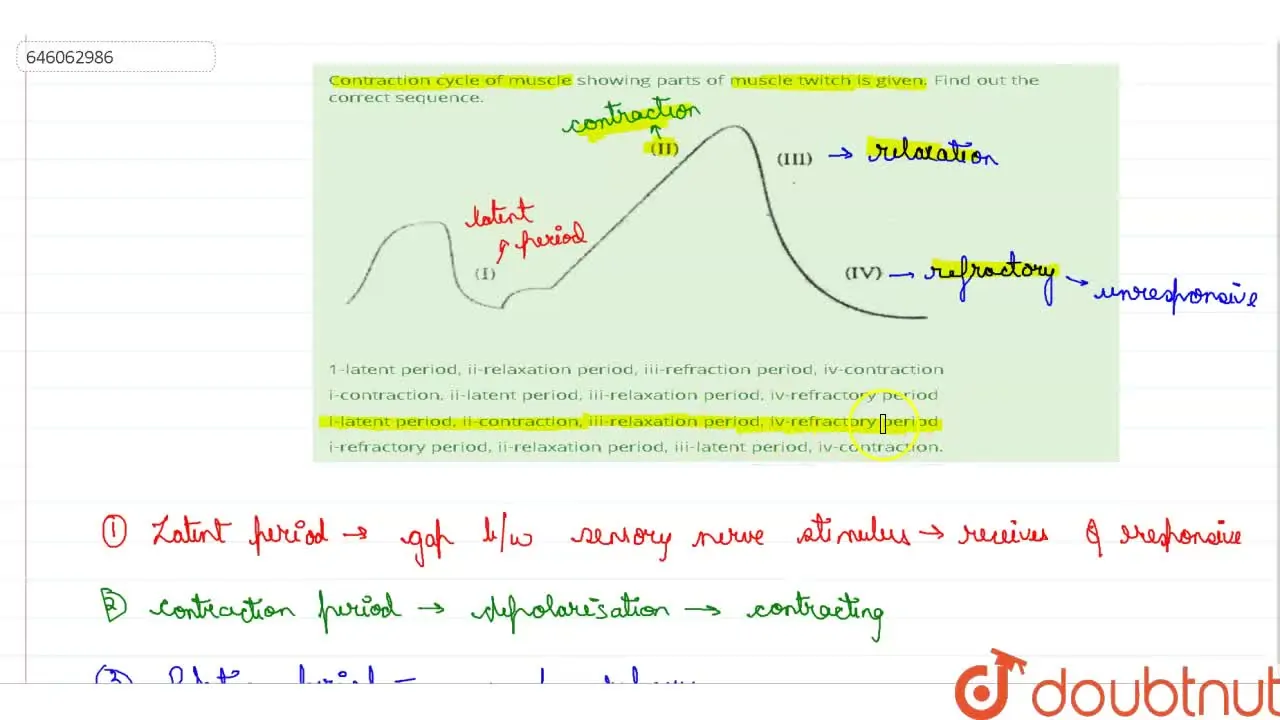 646062986
Contraction cycle of muscle showing parts of muscle twitch is given. Find out the
correct sequence.
contraction
(II)
(III) → relaxation
latent
period
(I)
(IV) → refractory → unresponsive
1-latent period, ii-relaxation period, iii-refraction period, iv-contraction
i-contraction, ii-latent period, iii-relaxation period, iv-refractory period
i-latent period, ii-contraction, iii-relaxation period, iv-refractory period
i-refractory period, ii-relaxation period, iii-latent period, iv-contraction.
① Latent period → gap b/w sensory nerve stimulus → receives & responsive
② contraction period → depolarisation → contracting
doubtnut